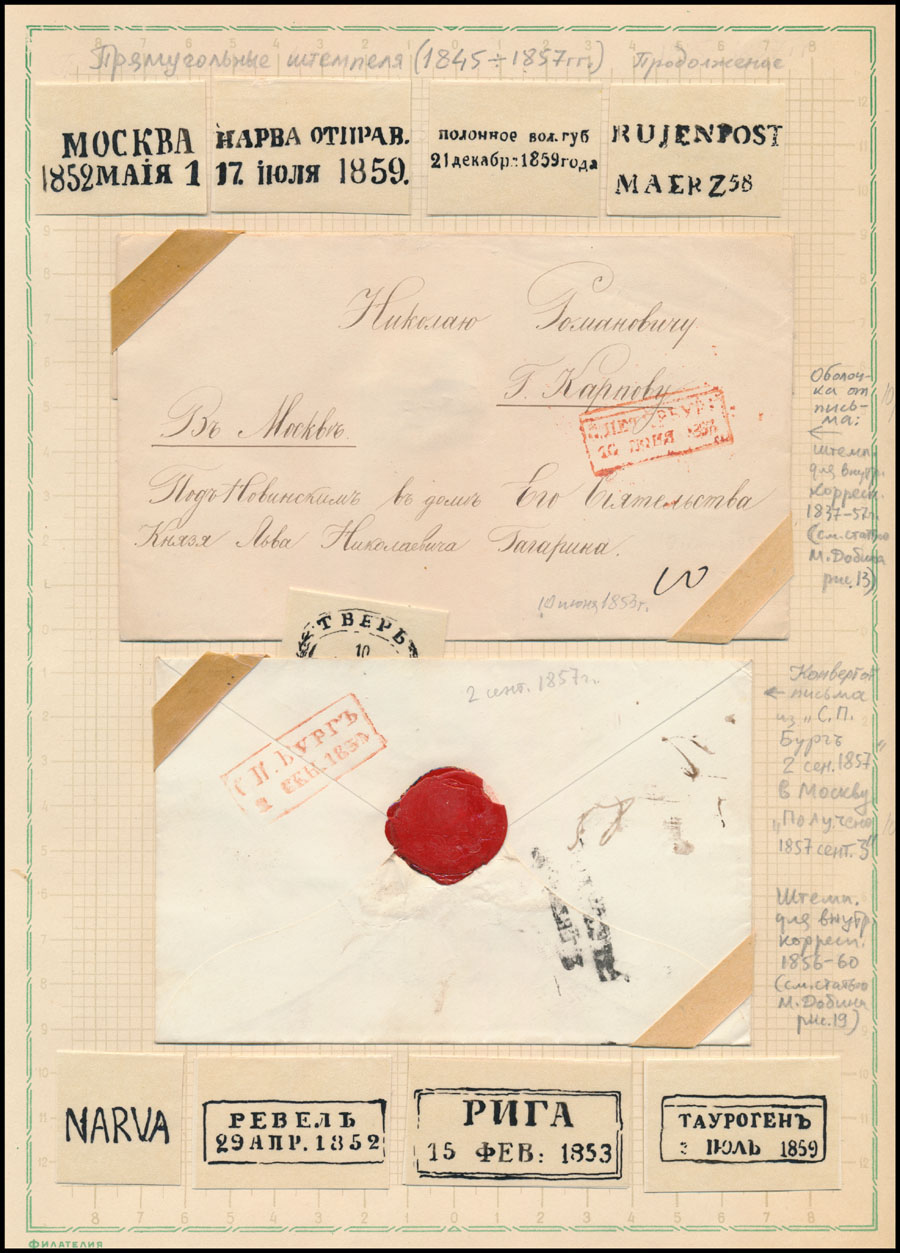 Прямугольные штемпеля (1845÷1857гг.) Продолжение
МОСКВА
1852 МАІЯ 1
НАРВА ОТПРАВ.
17. ІЮЛЯ 1859.
ПОЛОННОЕ ВОЛ. ГУБ
21 декабр: 1859 года
RUJENPOST
MAERZ 58
Николаю Романовичу
Г. Карпову
Въ Москвѣ.
С.ПЕТЕРБУРГ
10 ІЮНЯ 1853
Подъ Новинскимъ въ домѣ Его Сіятельства
Князя Льва Николаевича Гагарина.
10 июня 1853г.
10
Оболоч-
ка от
пись-
ма:
←
штемп.
для внутр.
корресп.
1837-52г.
(см. статью
М. Добина
рис. 13)
ТВЕРЬ
10
2 сент. 1857г.
С.П.БУРГЪ
2 СЕН. 1857
58
Конверт от
← письма
из "С.П.
Бургъ"
2 сен. 1857
в Москву
"Получено
1857 сент. 3"
Штемп.
для внутр.
корресп.
1856-60
(см. статью
М. Добина
рис. 19)
NARVA
РЕВЕЛЬ
29 АПР. 1852
РИГА
15 ФЕВ: 1853
ТАУРОГЕНЪ
3 ІЮЛЬ 1859
ФИЛАТЕЛИЯ